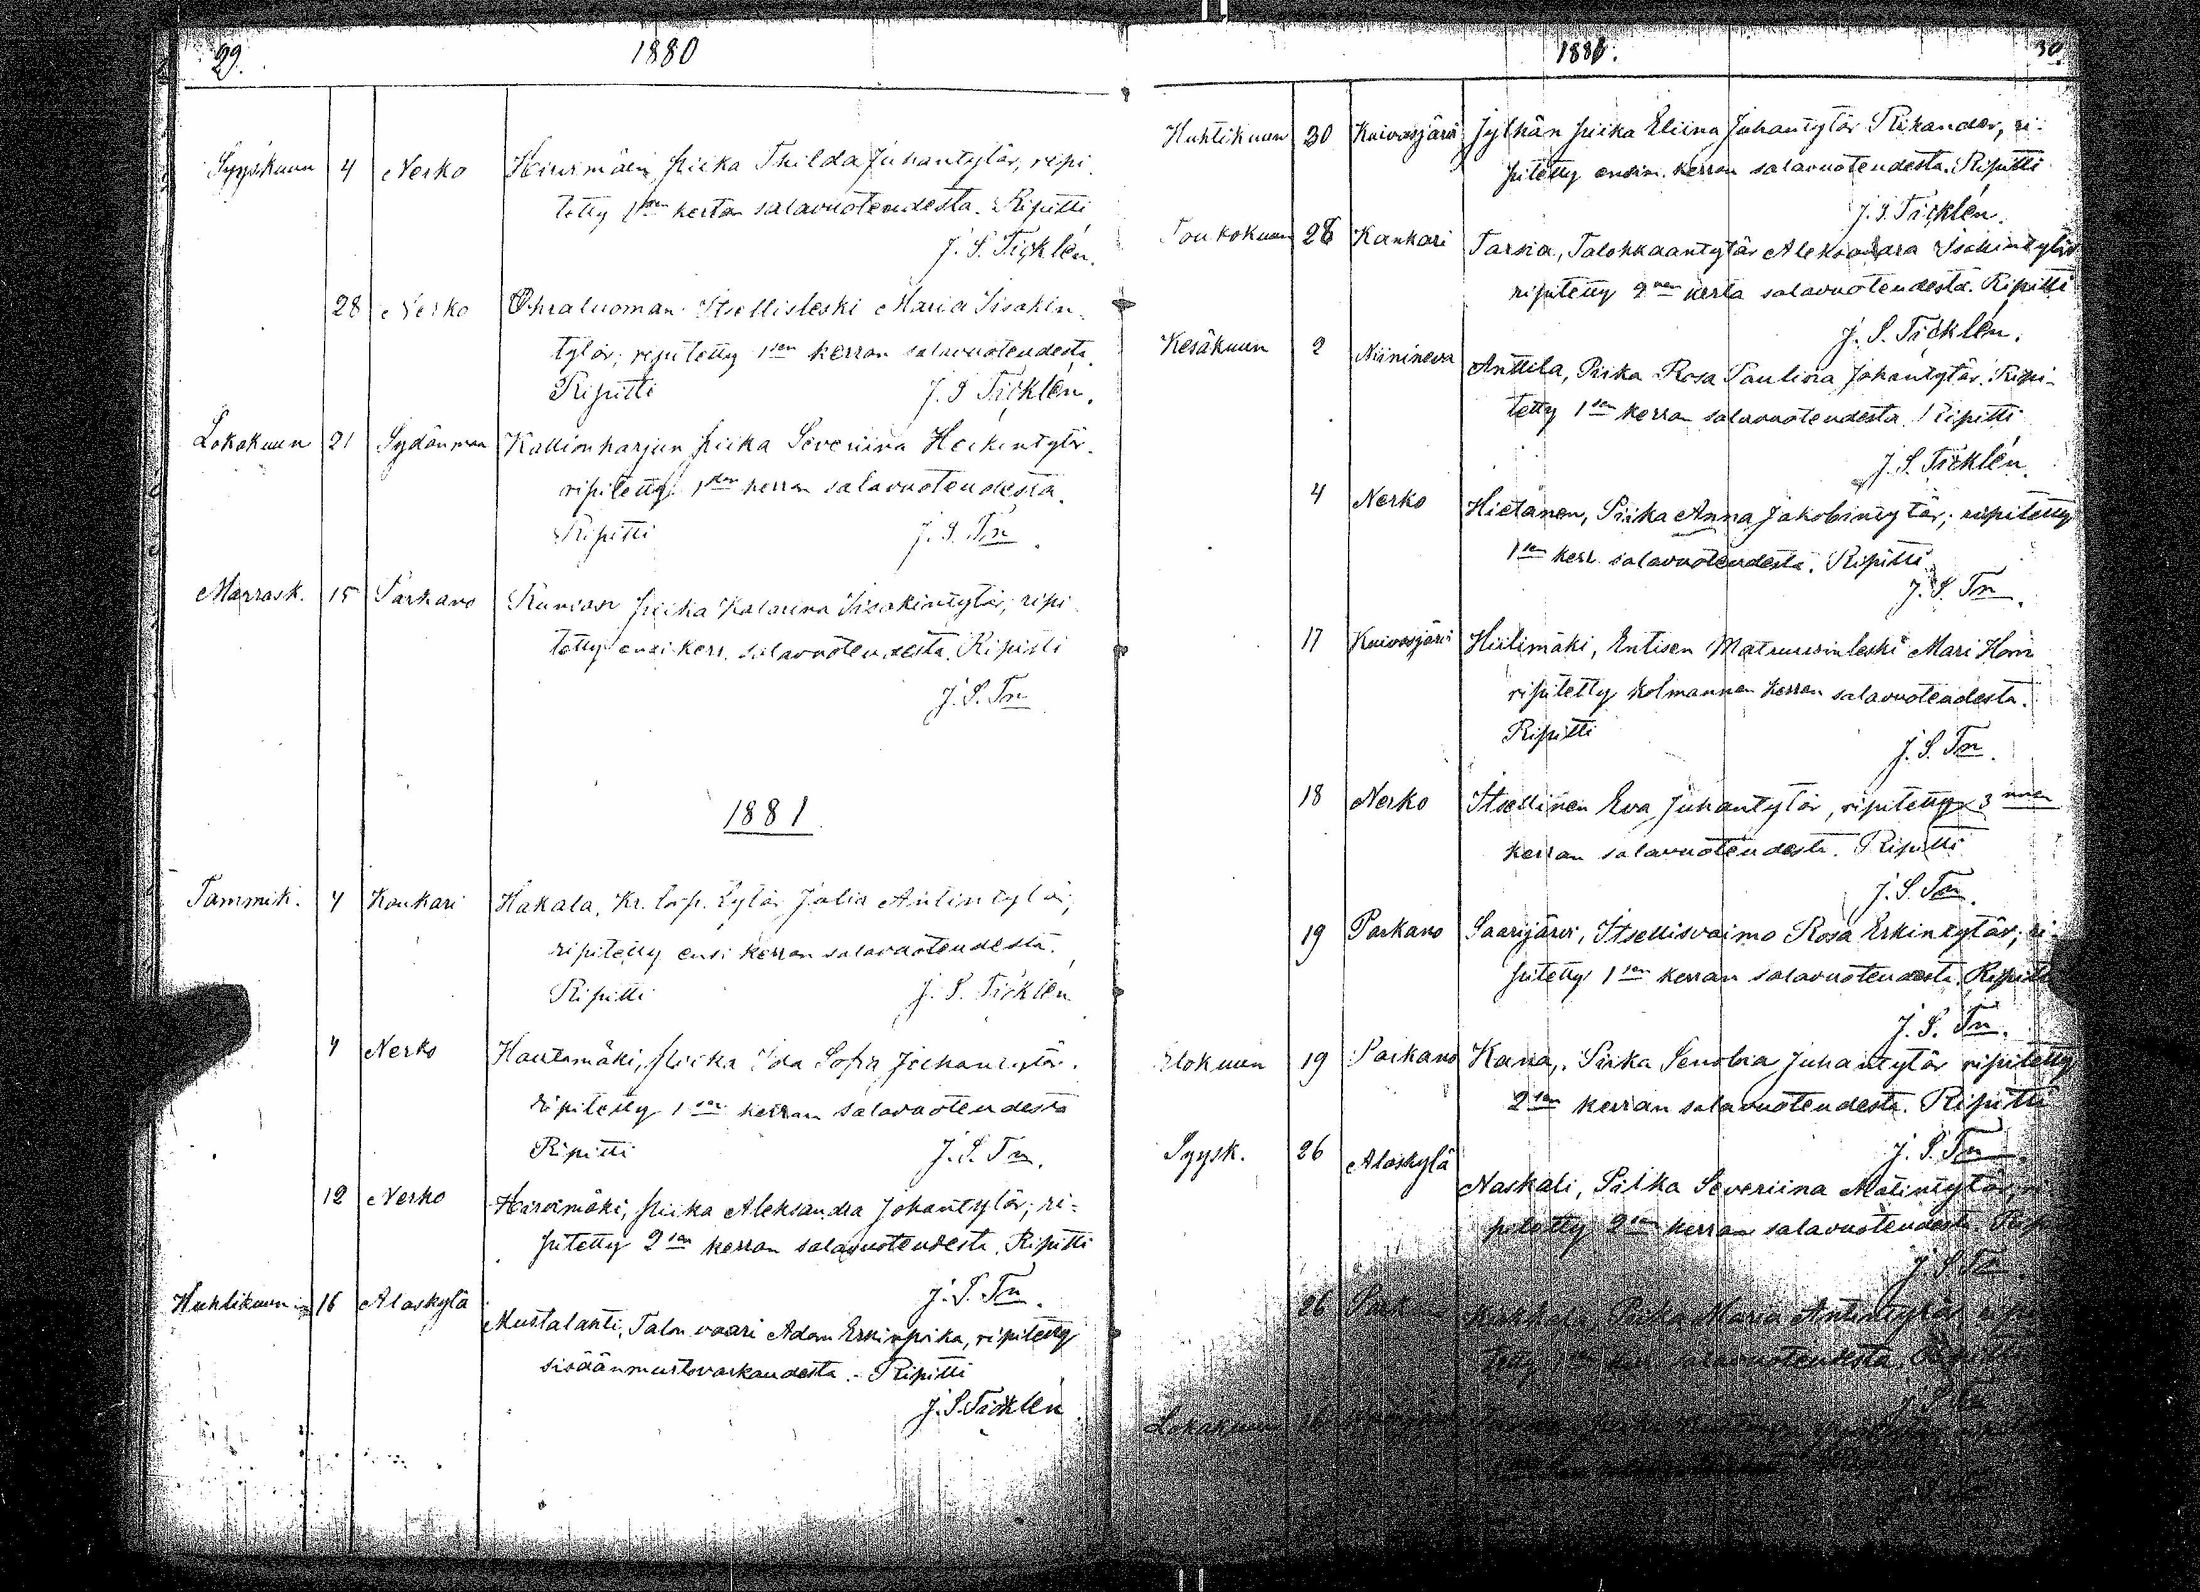 29.
1880
Syyskuun 4 Nerko Hirvimäen piika Thilda Juhantytär, ripi
tetty 1sen kerran salavuoteudesta. Ripitti
J. S. Ticklén.
28 Nerko Ohraluoman Itsellisleski Maria Iisakin
tytär; ripitetty 1sen kerran salavuoteudesta.
Ripitti J. S Ticklén.
Lokakuun 21 Sydänmaa Kallionharjun piika Severiina Heikintytär.
ripitetty 1sen kerran salavuoteudesta.
Ripitti J. S. Tn.
Marrask. 15 Parkano piika Katariina Iisakintytär; ripi
tetty ensi kerr. salavuoteudesta. Ripitti
J. S. Tn
1881
Tammik. 4 Kankari Hakala, Kr. torp. tytär Julia Antintytär,
ripitetty ensi kerran salavuoteudesta.
Ripitti J. S. Ticklén
4 Nerko Hautamäki, piika Ida Sofia Juhantytär.
ripitetty 1sen kerran salavuoteudesta
Ripitti J. S. Tn.
12 Nerko Hirvimäki, piika Aleksandra Johantytär; ri=
pitetty 2sen kerran salavuoteudesta, Ripitti
J. S. Tn.
Huhtikuun 16 Alaskylä Mustalahti, Talon vaari Adam Erkinpoika, ripitetty
sisäänmurtovarkaudesta. - Ripitti
J. S. Ticklén.
1881.
30.
Huhtikuun 30 Kuivasjärvi Jylhän piika Eliina Juhantytär Rikander, ri-
pitetty ensim. kerran salavuoteudesta. Ripitti
J. S. Ticklén.
Toukokuun 28 Kankari Tarsia, Talokkaantytär Aleksandra Iisakintytär
ripitetty 2nen kerta salavuoteudesta. Ripitti
J. S. Ticklén.
Kesäkuun 2 Niinineva Anttila, Piika Rosa Pauliina Johantytär. Ripi-
tetty 1sen kerran salavuoteudesta. Ripitti
J. S. Ticklén.
4 Nerko Hietanen, Piika Anna Jakobintytär; ripitetty
1sen kerr. salavuoteudesta. Ripitti
J. S. Tn.
17 Kuivasjärvi Hiilimäki, Entisen leski Mari Horn
ripitetty kolmannen kerran salavuoteudesta.
Ripitti J. S. Tn.
18 Nerko Itsellinen Eva Juhantytär, ripitetty 3nnen
kerran salavuoteudesta. Ripitti
J. S. Tn.
19 Parkano Saarijärvi, Itsellisvaimo Rosa Erkintytär; ri-
pitetty 1sen kerran salavuoteudesta. Ripitti
J. S. Tn.
Elokuun 19 Parkano Kana, Piika Senobia Juhantytär ripitetty
2sen kerran salavuoteudesta. Ripitti
J. S. Tn.
Syysk. 26 Alaskylä Naskali, Piika Severiina Matintytär,
pitetty 2sen kerran salavuoteudesta.
J. S. Tn.
26 Piika Maria Antintytär
tetty salavuoteudesta,
J. S. Tn
Lokakuun 16